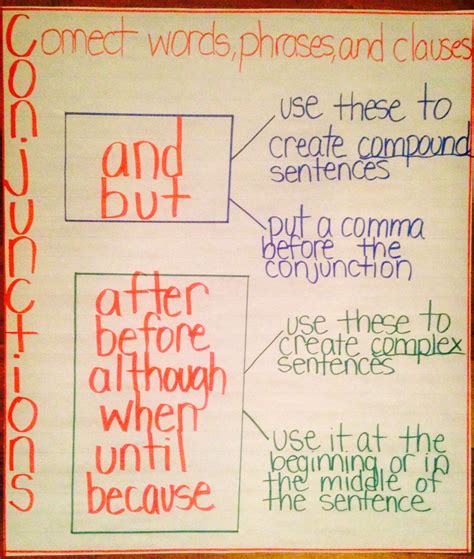 Conjunctions
Connect words, phrases, and clauses
and
but
use these to
create compound
sentences
put a comma
before the
conjunction
after
before
although
when
until
because
use these to
create complex
sentences
use it at the
beginning or in
the middle of
the sentence